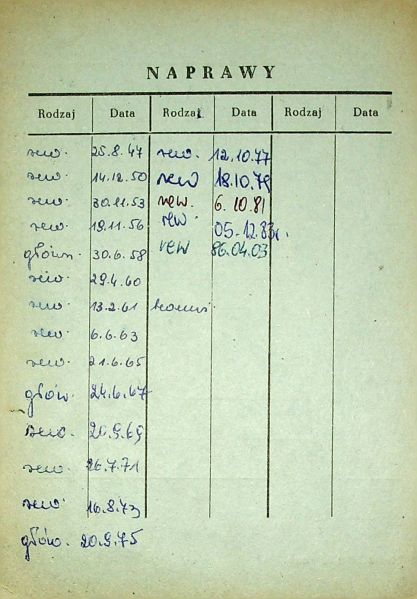 NAPRAWY
Rodzaj Data Rodzaj Data Rodzaj Data
rew. 25.8.47 rew. 12.10.77
rew. 14.12.50 rew 18.10.79
rew. 30.11.53 rew. 6.10.81
rew. 19.11.56 rew. 05.12.83r.
główn. 30.6.58 rew 86.04.03
rew. 29.4.60
rew. 13.2.61
rew. 6.6.63
rew. 21.6.65
głów. 24.6.67
rew. 20.9.69
rew. 26.7.71
rew. 16.8.73
głów. 20.9.75